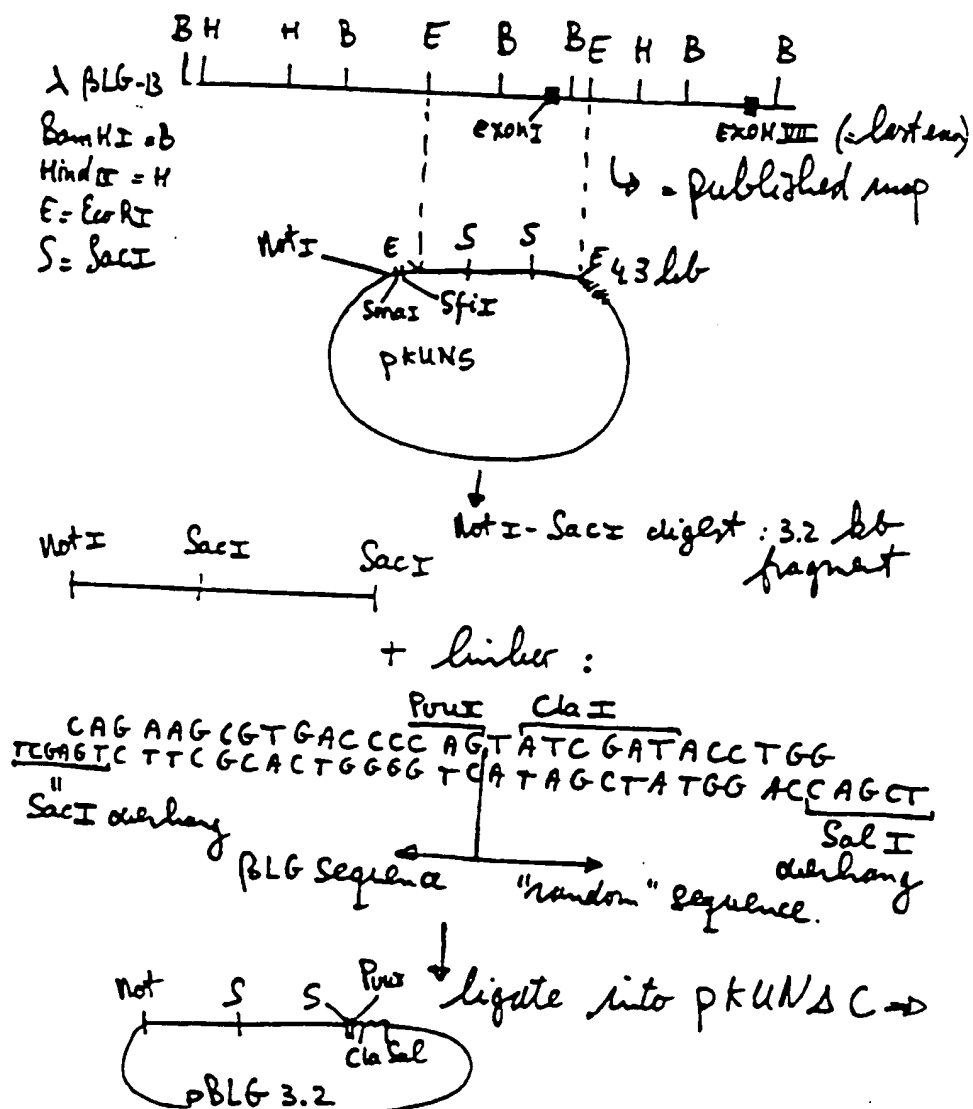 B H H B E B B E H B B
λ βLG-B
BamHI = B
HindIII = H
E = EcoRI
S = SacI
exonI
EXON VII (= last exon)
↳ = published map
NotI E S S E 4.3 kb
SmaI SfiI
pKUNS
NotI-SacI digest : 3.2 kb
fragment
NotI SacI SacI
+ linker :
PvuI ClaI
CAG AAG CGT GACCCC AGT ATC GAT ACC TGG
TCGAGTC TTCGCACTGGGG TCA TAGCTATGG ACC CAGCT
"
SacI overhang
SalI
overhang
βLG sequence
"random" sequence.
Not S S PvuI
ligate into pKUNΔC ⇒
Cla Sal
pBLG 3.2